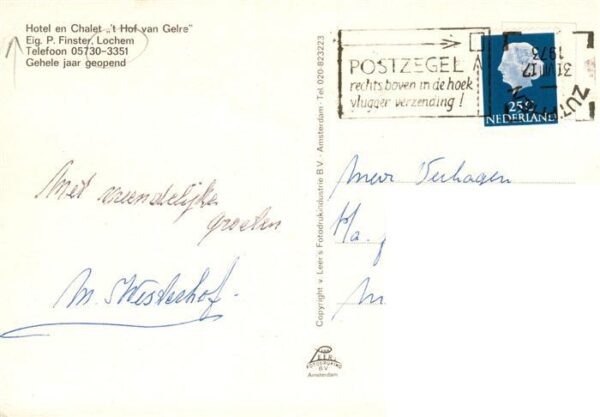 Hotel en Chalet „'t Hof van Gelre"
Eig. P. Finster, Lochem
Telefoon 05730-3351
Gehele jaar geopend
POSTZEGEL
rechts boven in de hoek
vlugger verzending!
ZUTPHEN
31 VII 17
1973
25c
NEDERLAND
Met vriendelijke
groeten
M. Westerhof.
Mevr Verhagen
Ha
Copyright v. Leer's Fotodrukindustrie B.V. - Amsterdam - Tel. 020-823223
LEER
FOTODRUKIND
B.V.
Amsterdam